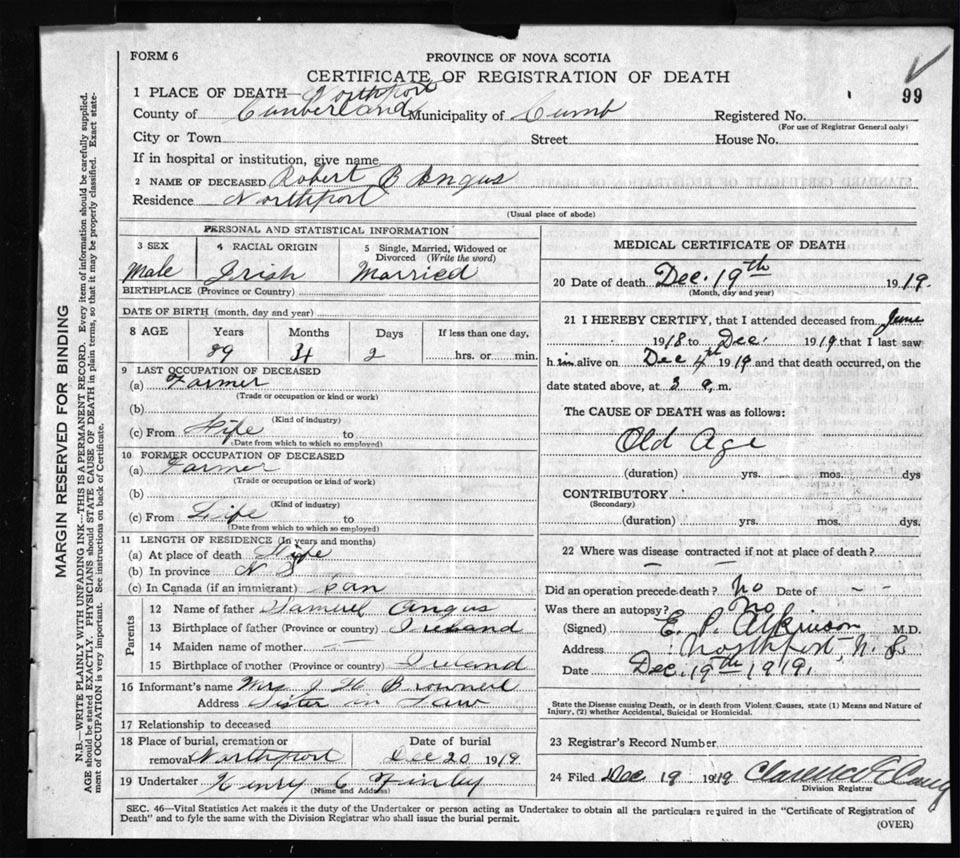 FORM 6
PROVINCE OF NOVA SCOTIA
CERTIFICATE OF REGISTRATION OF DEATH
99
1 PLACE OF DEATH— Northport
County of Cumberland Municipality of Cumb Registered No.
(For use of Registrar General only)
City or Town Street House No.
If in hospital or institution, give name
2 NAME OF DECEASED Robert B Angus
Residence Northport
(Usual place of abode)
PERSONAL AND STATISTICAL INFORMATION
3 SEX 4 RACIAL ORIGIN 5 Single, Married, Widowed or
Divorced (Write the word)
Male Irish Married
BIRTHPLACE (Province or Country)
DATE OF BIRTH (month, day and year)
8 AGE Years Months Days If less than one day,
89 2 hrs. or min.
9 LAST OCCUPATION OF DECEASED
(a) Farmer
(Trade or occupation or kind or work)
(b)
(Kind of industry)
(c) From Life to
(Date from which to which so employed)
10 FORMER OCCUPATION OF DECEASED
(a) Farmer
(Trade or occupation or kind of work)
(b)
(Kind of industry)
(c) From Life to
(Date from which to which so employed)
11 LENGTH OF RESIDENCE (In years and months)
(a) At place of death Life
(b) In province N S
(c) In Canada (if an immigrant) Can
Parents
12 Name of father Samuel Angus
13 Birthplace of father (Province or country) Ireland
14 Maiden name of mother —
15 Birthplace of mother (Province or country) Ireland
16 Informant's name Mrs J W Brownell
Address Sister in Law
17 Relationship to deceased
18 Place of burial, cremation or Date of burial
removal Northport Dec 20 1919
19 Undertaker Henry C Finley
(Name and Address)
MEDICAL CERTIFICATE OF DEATH
20 Date of death Dec. 19th 1919.
(Month, day and year)
21 I HEREBY CERTIFY, that I attended deceased from June
1918 to Dec. 1919 that I last saw
h im alive on Dec 4th 1919 and that death occurred, on the
date stated above, at 3 a. m.
The CAUSE OF DEATH was as follows:
Old Age
(duration) yrs. mos. dys
CONTRIBUTORY
(Secondary)
(duration) yrs. mos. dys.
22 Where was disease contracted if not at place of death?
— —
Did an operation precede death? No Date of — –
Was there an autopsy? No
(Signed) E. P. Atkinson M.D.
Address Northport, N. S.
Date Dec. 19th 1919.
State the Disease causing Death, or in death from Violent Causes, state (1) Means and Nature of
Injury, (2) whether Accidental, Suicidal or Homicidal.
23 Registrar's Record Number
24 Filed Dec 19 1919 Clarence E
Division Registrar
SEC. 46—Vital Statistics Act makes it the duty of the Undertaker or person acting as Undertaker to obtain all the particulars required in the "Certificate of Registration of
Death" and to fyle the same with the Division Registrar who shall issue the burial permit.
(OVER)
MARGIN RESERVED FOR BINDING
N.B.—WRITE PLAINLY WITH UNFADING INK—THIS IS A PERMANENT RECORD. Every item of information should be carefully supplied.
AGE should be stated EXACTLY. PHYSICIANS should STATE CAUSE OF DEATH in plain terms, so that it may be properly classified. Exact state-
ment of OCCUPATION is very important. See instructions on back of Certificate.